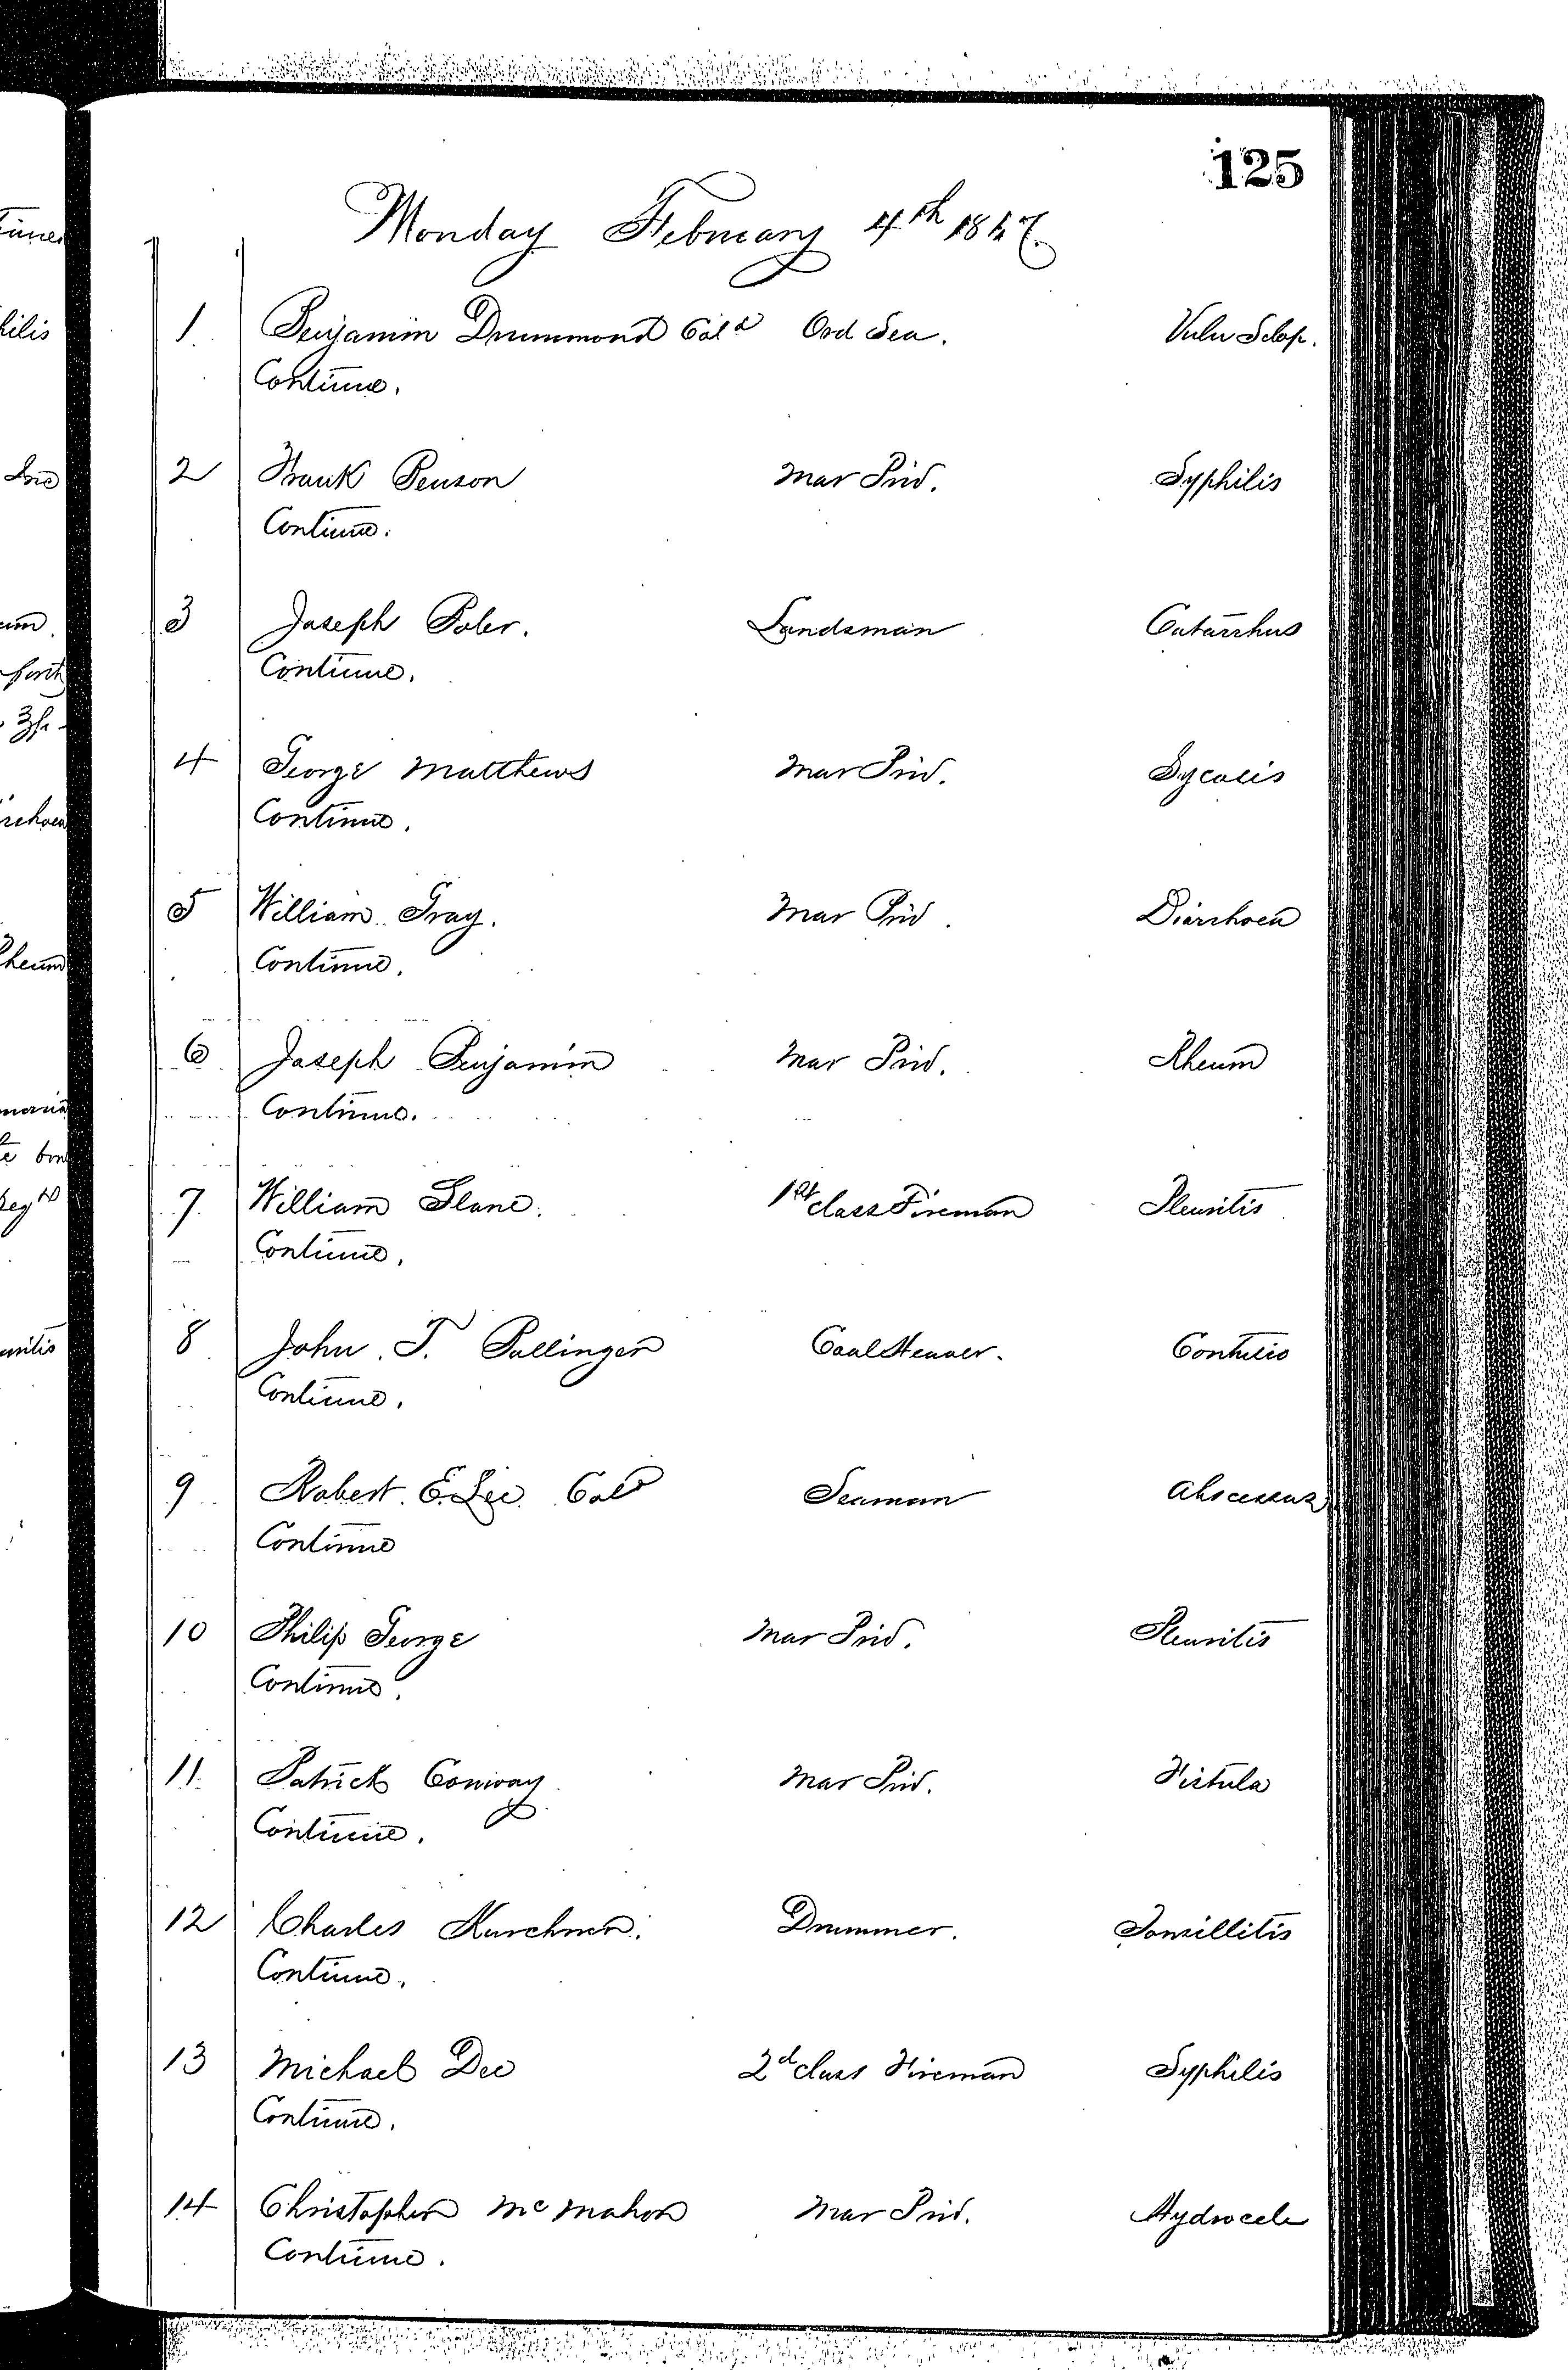 125
Monday February 4th 1867.
1 Benjamin Drummond Cold Ord Sea. Vuln Sclop.
Continue.
2 Frank Benson Mar Priv. Syphilis
Continue.
3 Joseph Boler. Landsman Catarrhus
Continue.
4 George Matthews Mar Priv. Sycosis
Continue.
5 William Gray. Mar Priv. Diarrhoea
Continue.
6 Joseph Benjamin Mar Priv. Rheum
Continue.
7. William Slane. 1st class Fireman Pleuritis
Continue.
8 John T. Bullinger Coal Heaver. Contusio
Continue.
9 Robert E. Lee Cold Seaman Abscessus
Continue
10 Philip George Mar Priv. Pleuritis
Continue.
11. Patrick Conway Mar Priv. Fistula
Continue.
12 Charles Kurchner. Drummer. Tonsillitis
Continue.
13 Michael Dee 2d class Fireman Syphilis
Continue.
14 Christopher McMahon Mar Priv. Hydrocele
Continue.